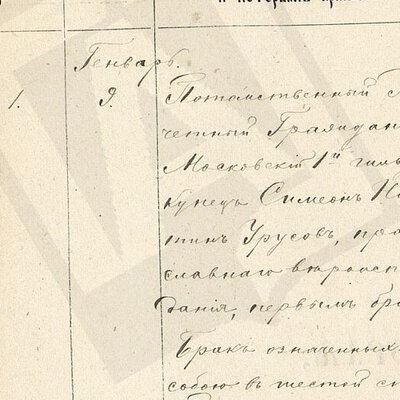 Генварь.
1. 9. Потомственный
четный Граждан
Московскій 1й гиль
купецъ Симеонъ Ни
тинъ Урусовъ, пра
славнаго вѣроиспо
данія, первымъ бра
Бракъ означенныхъ
собою въ шестой ст